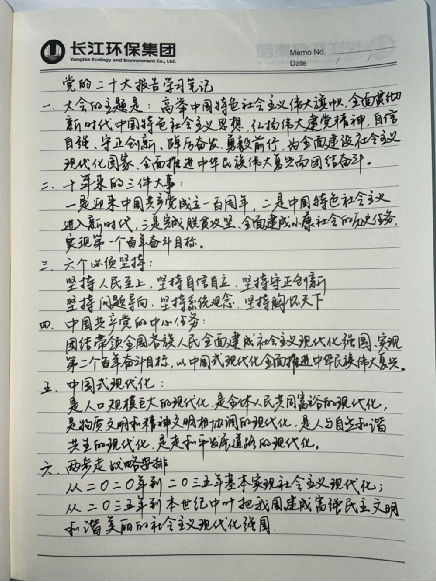 长江环保集团
Yangtze Ecology and Environment Co., Ltd.
Memo No.
Date
党的二十大报告学习笔记
一、大会的主题是：高举中国特色社会主义伟大旗帜，全面贯彻
新时代中国特色社会主义思想，弘扬伟大建党精神，自信
自强、守正创新、踔厉奋发、勇毅前行，为全面建设社会主义
现代化国家、全面推进中华民族伟大复兴而团结奋斗。
二、十年来的三件大事：
一是迎来中国共产党成立一百周年，二是中国特色社会主义
进入新时代，三是完成脱贫攻坚、全面建成小康社会的历史任务，
实现第一个百年奋斗目标。
三、六个必须坚持：
坚持人民至上，坚持自信自立，坚持守正创新
坚持问题导向，坚持系统观念，坚持胸怀天下
四、中国共产党的中心任务：
团结带领全国各族人民全面建成社会主义现代化强国、实现
第二个百年奋斗目标，以中国式现代化全面推进中华民族伟大复兴。
五、中国式现代化：
是人口规模巨大的现代化，是全体人民共同富裕的现代化，
是物质文明和精神文明相协调的现代化，是人与自然和谐
共生的现代化，是走和平发展道路的现代化。
六、两步走战略安排
从二〇二〇年到二〇三五年基本实现社会主义现代化；
从二〇三五年到本世纪中叶把我国建成富强民主文明
和谐美丽的社会主义现代化强国